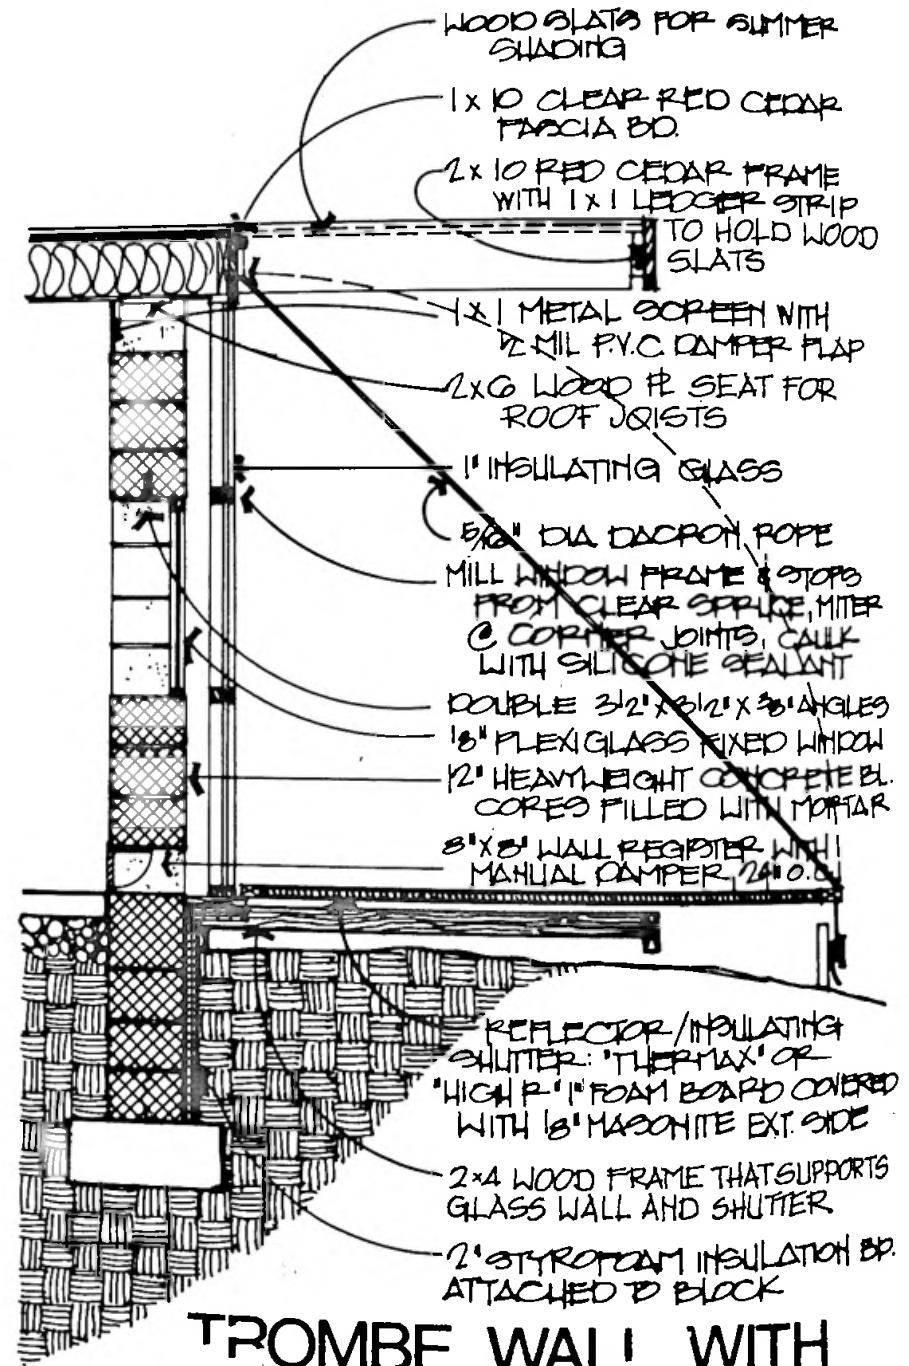 WOOD SLATS FOR SUMMER
SHADING
1 x 10 CLEAR RED CEDAR
FASCIA BD.
2 x 10 RED CEDAR FRAME
WITH 1 x 1 LEDGER STRIP
TO HOLD WOOD
SLATS
1 x 1 METAL SCREEN WITH
1/2 MIL P.V.C. DAMPER FLAP
2x6 WOOD PL SEAT FOR
ROOF JOISTS
1" INSULATING GLASS
5/16" DIA. DACRON ROPE
MILL WINDOW FRAME & STOPS
FROM CLEAR SPRUCE, MITER
@ CORNER JOINTS, CAULK
WITH SILICONE SEALANT
DOUBLE 3 1/2" X 3 1/2" X 3/8" ANGLES
1/8" PLEXIGLASS FIXED WINDOW
12" HEAVYWEIGHT CONCRETE BL.
CORES FILLED WITH MORTAR
8" X 8" WALL REGISTER WITH
MANUAL DAMPER, 24" O.C.
REFLECTOR/INSULATING
SHUTTER: "THERMAX" OR
"HIGH R" 1" FOAM BOARD COVERED
WITH 1/8" MASONITE EXT. SIDE
2x4 WOOD FRAME THAT SUPPORTS
GLASS WALL AND SHUTTER
2" STYROFOAM INSULATION BD.
ATTACHED TO BLOCK
TROMBE WALL WITH